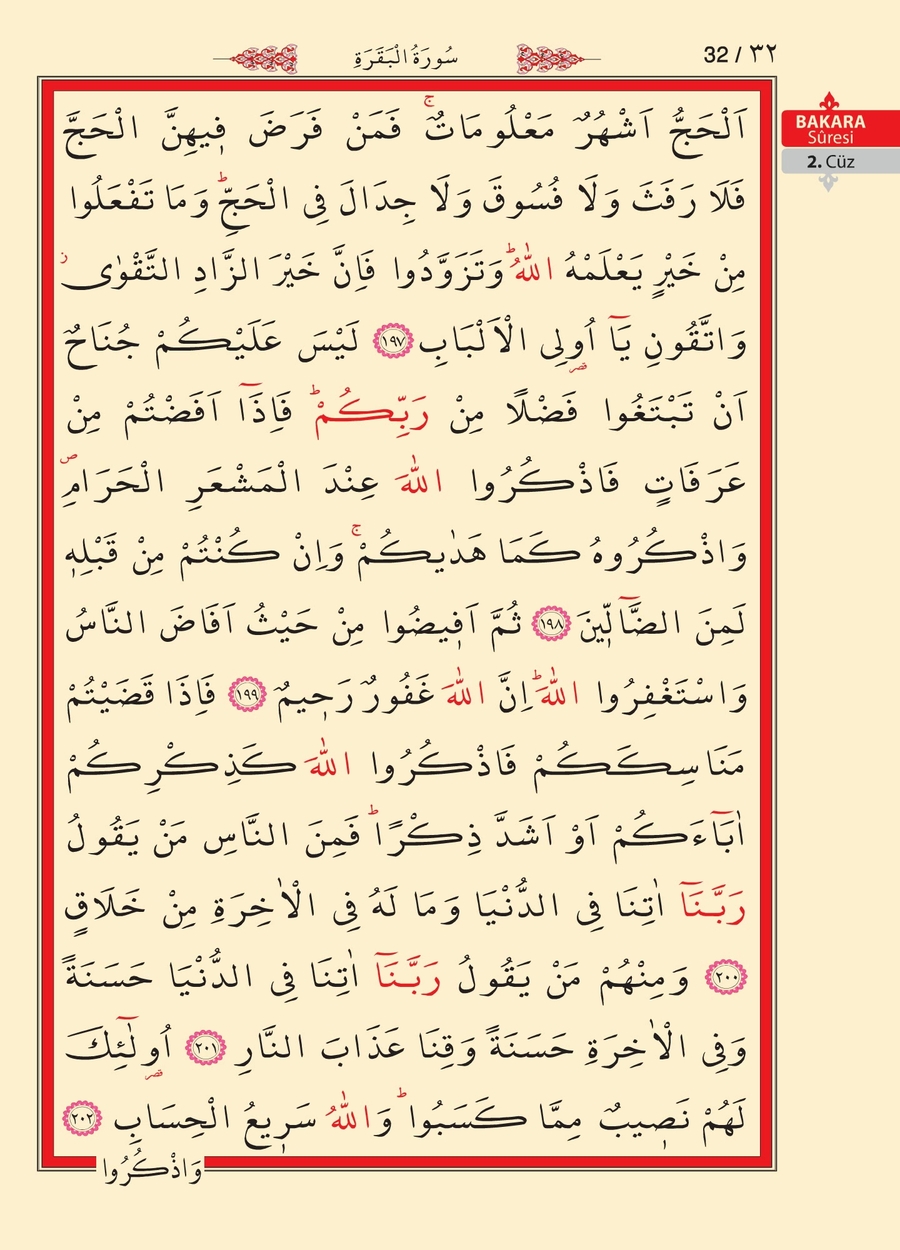 سُورَةُ الْبَقَرَةِ
32 / ٣٢
BAKARA
Sûresi
2. Cüz
اَلْحَجُّ اَشْهُرٌ مَعْلُومَاتٌۚ فَمَنْ فَرَضَ ف۪يهِنَّ الْحَجَّ
فَلَا رَفَثَ وَلَا فُسُوقَ وَلَا جِدَالَ فِى الْحَجِّۜ وَمَا تَفْعَلُوا
مِنْ خَيْرٍ يَعْلَمْهُ اللّٰهُۜ وَتَزَوَّدُوا فَاِنَّ خَيْرَ الزَّادِ التَّقْوٰىۘ
وَاتَّقُونِ يَٓا اُولِى الْاَلْبَابِ ﴿١٩٧﴾ لَيْسَ عَلَيْكُمْ جُنَاحٌ
اَنْ تَبْتَغُوا فَضْلًا مِنْ رَبِّكُمْۜ فَاِذَٓا اَفَضْتُمْ مِنْ
عَرَفَاتٍ فَاذْكُرُوا اللّٰهَ عِنْدَ الْمَشْعَرِ الْحَرَامِۖ
وَاذْكُرُوهُ كَمَا هَدٰيكُمْۚ وَاِنْ كُنْتُمْ مِنْ قَبْلِه۪
لَمِنَ الضَّٓالّ۪ينَ ﴿١٩٨﴾ ثُمَّ اَف۪يضُوا مِنْ حَيْثُ اَفَاضَ النَّاسُ
وَاسْتَغْفِرُوا اللّٰهَۜ اِنَّ اللّٰهَ غَفُورٌ رَح۪يمٌ ﴿١٩٩﴾ فَاِذَا قَضَيْتُمْ
مَنَاسِكَكُمْ فَاذْكُرُوا اللّٰهَ كَذِكْرِكُمْ
اٰبَٓاءَكُمْ اَوْ اَشَدَّ ذِكْرًاۜ فَمِنَ النَّاسِ مَنْ يَقُولُ
رَبَّنَٓا اٰتِنَا فِى الدُّنْيَا وَمَا لَهُ فِى الْاٰخِرَةِ مِنْ خَلَاقٍ
﴿٢٠٠﴾ وَمِنْهُمْ مَنْ يَقُولُ رَبَّنَٓا اٰتِنَا فِى الدُّنْيَا حَسَنَةً
وَفِى الْاٰخِرَةِ حَسَنَةً وَقِنَا عَذَابَ النَّارِ ﴿٢٠١﴾ اُولٰٓئِكَ
لَهُمْ نَص۪يبٌ مِمَّا كَسَبُواۜ وَاللّٰهُ سَر۪يعُ الْحِسَابِ ﴿٢٠٢﴾
وَاذْكُرُوا